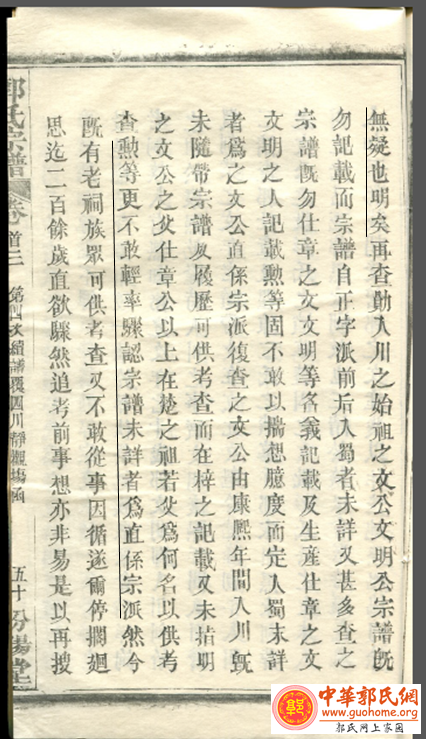 無疑也明矣再查勛入川之始祖之文公文明公宗譜既
勿記載而宗譜自正字派前后入蜀者未詳又甚多查之
宗譜既勿仕章之文文明等各義記載及生産仕章之文
文明之人記載勲等固不敢以揣想臆度而定入蜀未詳
者爲之文公直係宗派復查之文公由康熙年間入川既
未隨帶宗譜及履歷可供考查而在梓之記載又未指明
之文公之父仕章公以上在楚之祖若父爲何名以供考
查勲等更不敢輕率驟認宗譜未詳者爲直係宗派然今
既有老祠族眾可供者查又不敢從事因循遂爾停擱廻
思迄二百餘歲直欲驟然追考前事想亦非易是以再搜
郭氏宗譜
卷首三
第四次續譜覆四川靜觀場函
五十
汾陽堂
中華郭氏網
www.guohome.org
郭氏网上家園